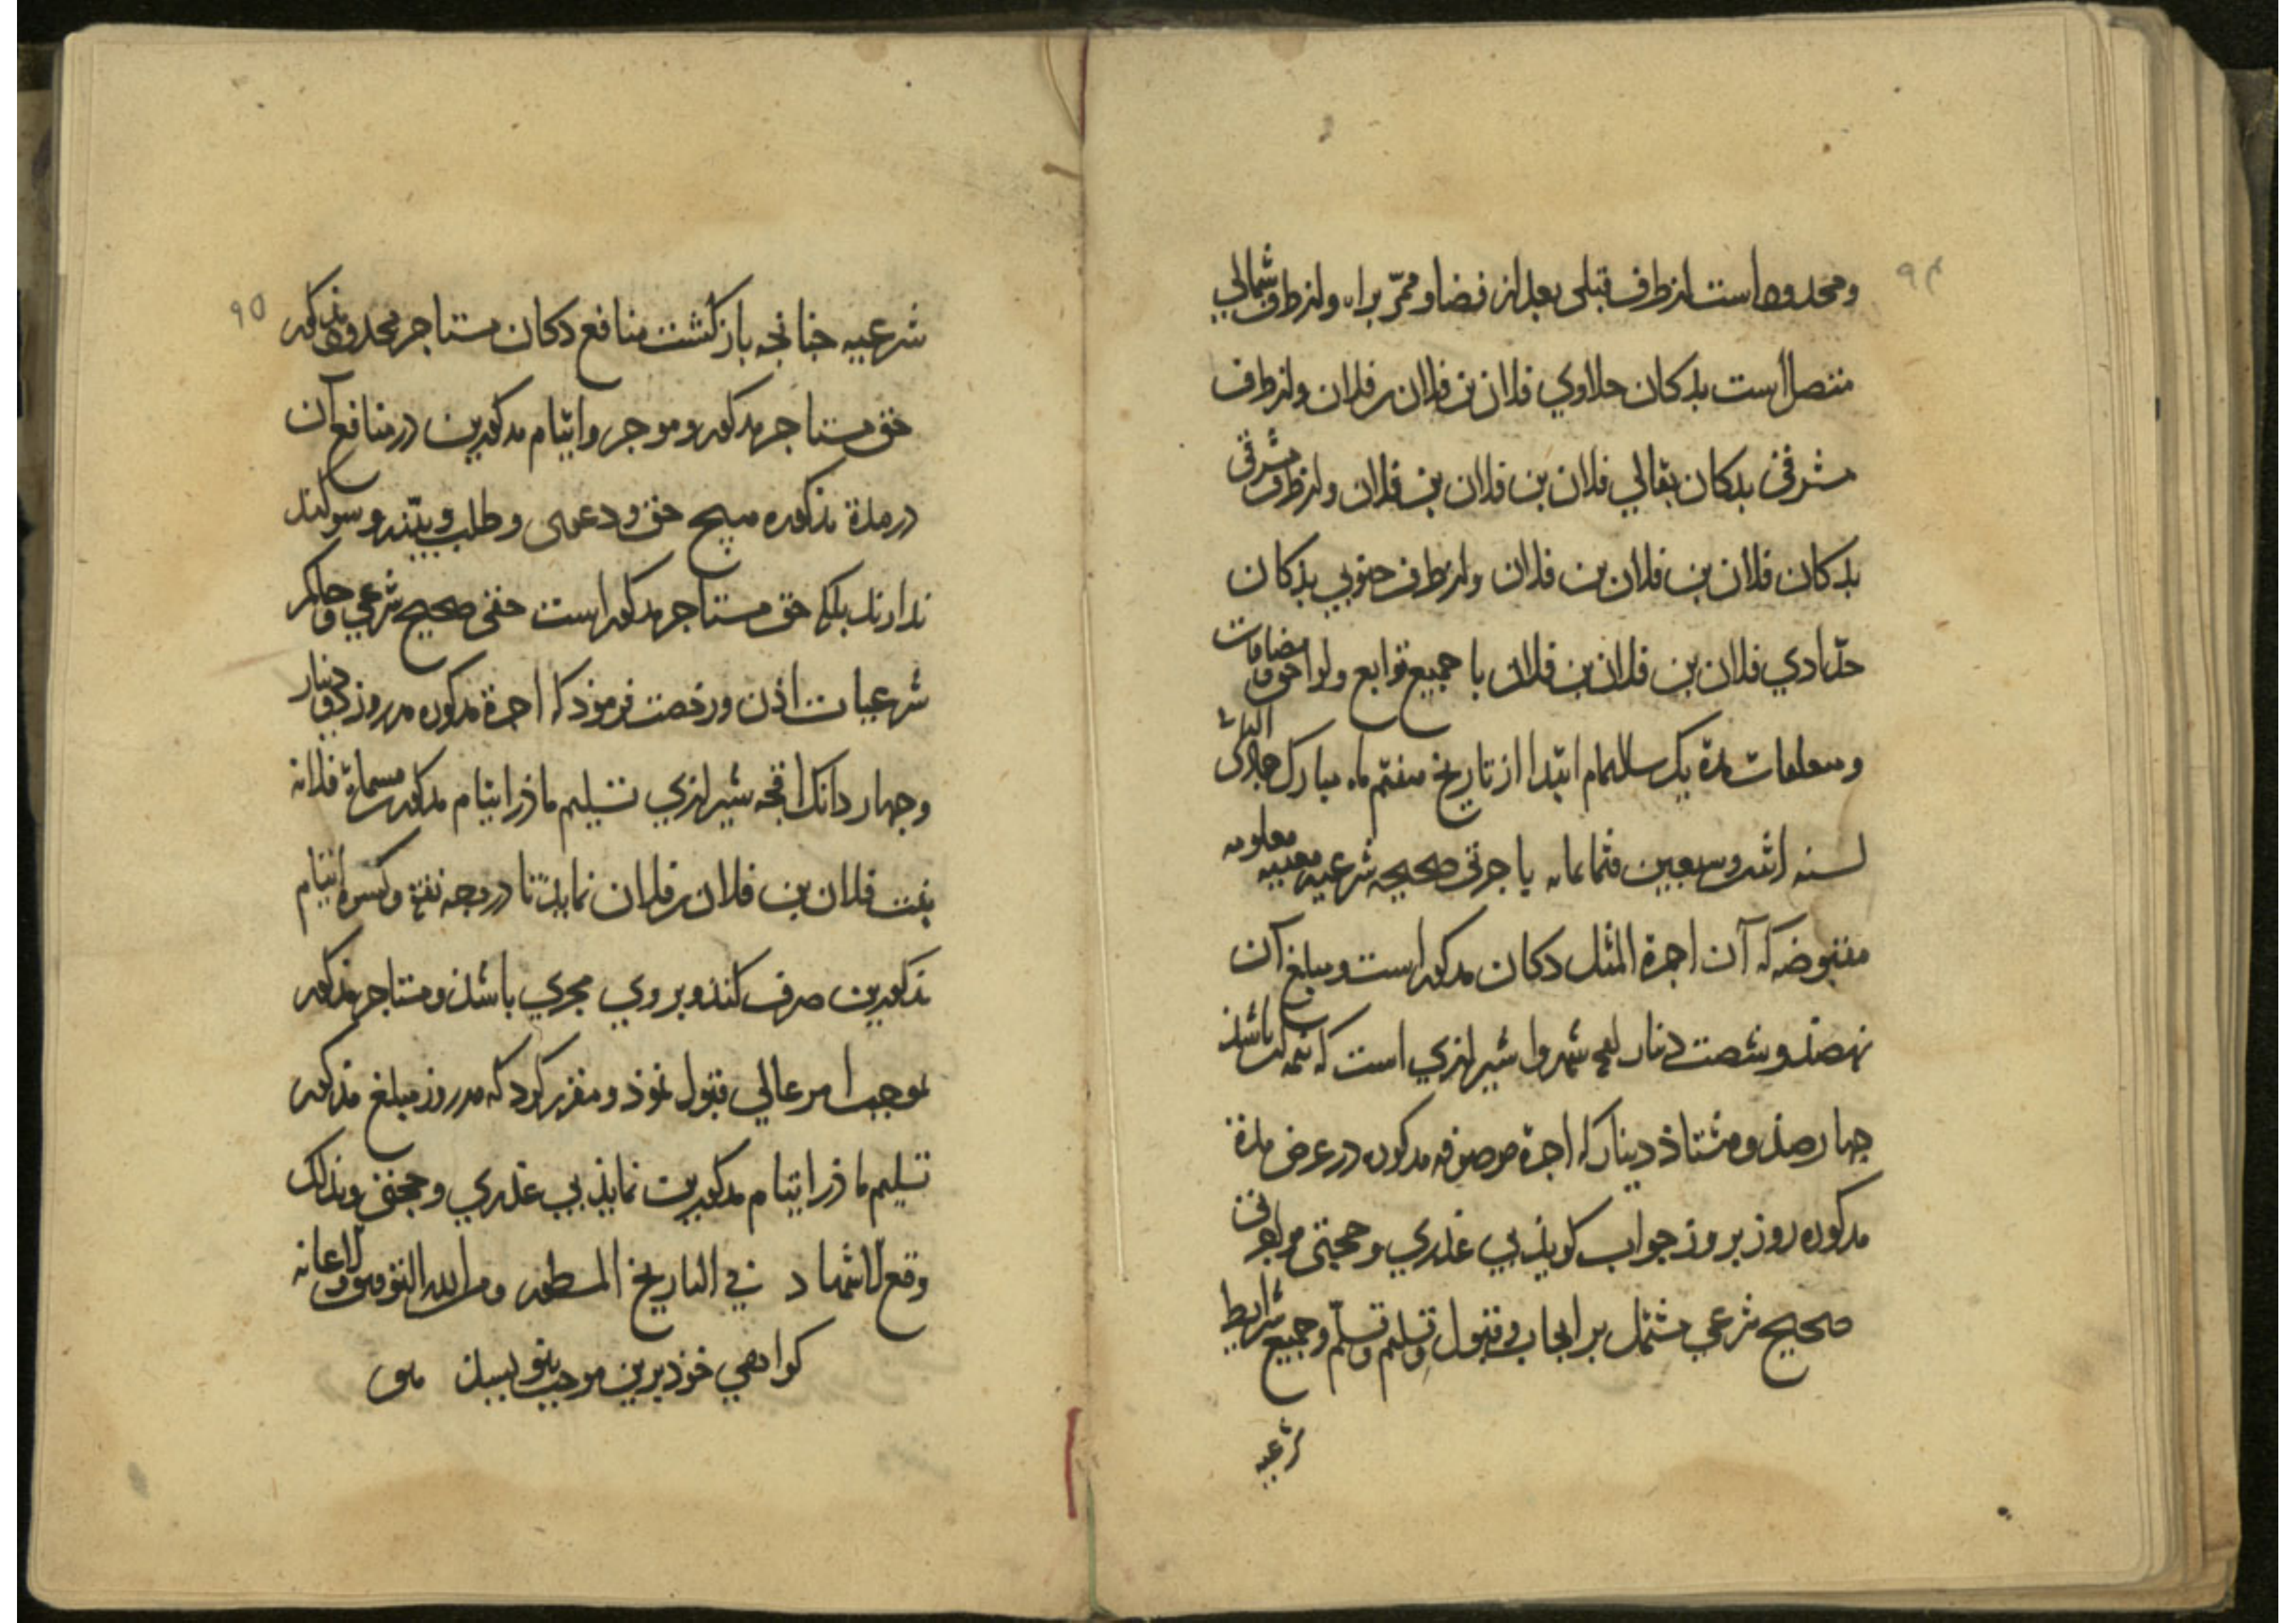 ۹۴
ومحدود است از طرف قبلی بعد از فضا و ممرّ براه و از طرف شمالي
متصل است بدکان حلاوي فلان بن فلان بن فلان و از طرف
شرقی بدکان بقالي فلان بن فلان بن فلان و از طرف شرقی
بدکان فلان بن فلان بن فلان و از طرف جنوبي بدکان
حدّادي فلان بن فلان بن فلان با جمیع توابع و لواحق و مضافات
و مدة یک سال تمام ابتدا از تاریخ هفتم ماه مبارک
لسنه وسبعین وثمانمایه باجرتی صحیحه شرعیه معینه معلومه
مقبوضه که آن اجرة المثل دکان مذکور است و مبلغ آن
نهصد و شصت دینار شیرازي است که نیمه آن باشد
چهارصد و هشتاذ دینار که اجرة موصوفه مذکوره در عرض مدة
مذکوره روز بروز جواب کوید بي عذري وحجتی
صحیح شرعي مشتمل بر ایجاب و قبول وتسلیم وتسلّم وجمیع شرایط
شرعیه
۹۵
شرعیه چنانچه بازکشت منافع دکان مستاجر محدود مذکور
حق مستاجر مذکور و موجر وایتام مذکورین در منافع آن
در مدة مذکوره هیچ حق و دعوی و طلب و بیّنه و سوکند
ندارند بلکه حق مستاجر مذکور است حقی صحیح شرعي و حاکم
شرعیات اذن ورخصت فرموذ که اجرة مذکوره هر روز دو دینار
وچهار دانک اقچه شیرازي تسلیم ماذر ایتام مذکور مسماة فلانه
بنت فلان بن فلان بن فلان نماید تا در وجه نفقه وکسوه ایتام
مذکورین صرف کند و بروي مجري باشذ و مستاجر مذکور
بموجب امر عالي قبول نموذ و مقرر کرد که هر روز مبلغ مذکور
تسلیم ماذر ایتام مذکورین نماید بي عذري وحجتی وبذلک
وقع الاشهاد في التاریخ المسطور ومن الله التوفیق والاعانه
کواهي خوذ برین موجب بنویسند